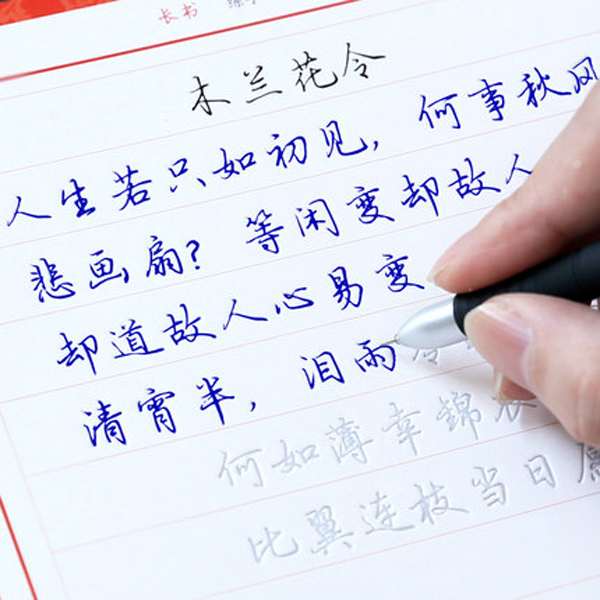 长书
木兰花令
人生若只如初见，何事秋风
悲画扇？等闲变却故人
却道故人心易变
清宵半，泪雨
何如薄幸錦衣
比翼连枝当日